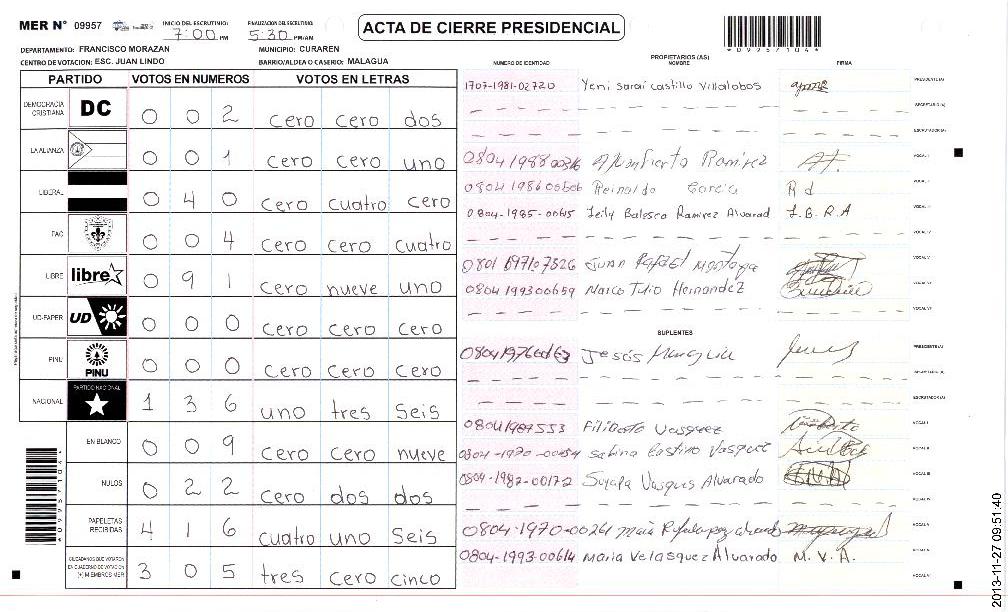 MER Nº 09957 INICIO DEL ESCRUTINIO: 7:00 PM FINALIZACION DEL ESCRUTINIO: 5:30 PM/AM ACTA DE CIERRE PRESIDENCIAL
DEPARTAMENTO: FRANCISCO MORAZAN MUNICIPIO: CURAREN
CENTRO DE VOTACION: ESC. JUAN LINDO BARRIO/ALDEA O CASERIO: MALAGUA
*0995710 4*
PARTIDO VOTOS EN NUMEROS VOTOS EN LETRAS
DEMOCRACIA CRISTIANA DC 0 0 2 cero cero dos
LA ALIANZA 0 0 1 cero cero uno
LIBERAL 0 4 0 cero cuatro cero
FAC 0 0 4 cero cero cuatro
LIBRE libre 0 9 1 cero nueve uno
UD-FAPER UD 0 0 0 cero cero cero
PINU PINU 0 0 0 cero cero cero
NACIONAL PARTIDO NACIONAL 1 3 6 uno tres seis
EN BLANCO 0 0 9 cero cero nueve
NULOS 0 2 2 cero dos dos
PAPELETAS RECIBIDAS 4 1 6 cuatro uno seis
CIUDADANOS QUE VOTARON EN CUADERNO DE VOTACION (+) MIEMBROS MER 3 0 5 tres cero cinco
PROPIETARIOS (AS)
NUMERO DE IDENTIDAD NOMBRE FIRMA
1707-1981-02720 Yeni Sarai Castillo Villalobos PRESIDENTE (A)
SECRETARIO (A)
ESCRUTADOR (A)
Ramirez VOCAL I
0804 1986 00506 Reinaldo Garcia R d
0804-1985-00615 Leily Ramirez Alvarad L.B.R.A
VOCAL IV
Juan Rafael Montoya VOCAL V
0804 1993 00659 Marco Tulio Hernandez
SUPLENTES
Jesús PRESIDENTE (A)
ESCRUTADOR (A)
Filiberto Vasquez VOCAL I
Sabina Vasquez VOCAL II
0804-1982-00172 Suyapa Vasques Alvarado VOCAL III
VOCAL IV
0804-1970-00261 VOCAL V
0804-1993-00614 Maria Velasquez Alvarado M. V. A.
2013-11-27 09:51:40